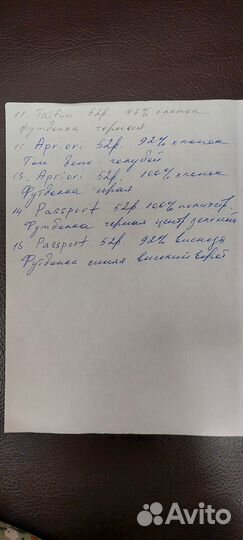 11. Тайвин 52р. 48% хлопок
Футболка черная
12. Apriori 52р. 92% хлопок
Топ бело-голубой
13. Apriori 52р. 100% хлопок
Футболка серая
14. Passport 52р. 100% полиэстр.
Футболка черная центр зеленый
15. Passport 52р. 92% вискоза
Футболка синяя высокий ворот
Avito